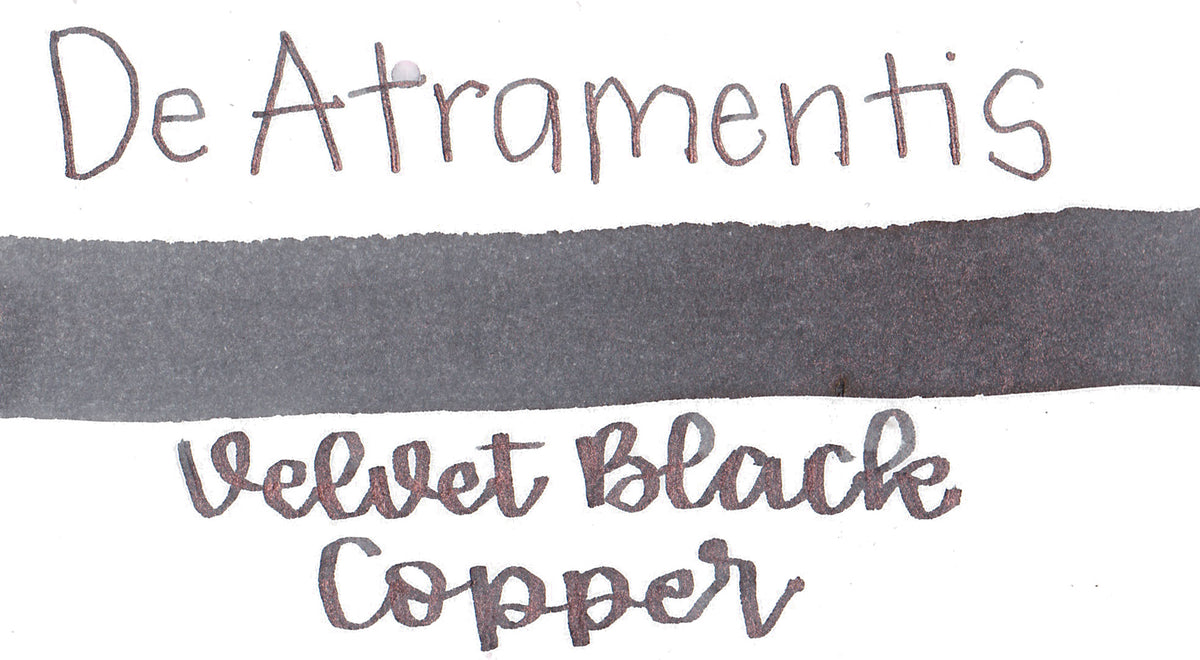 De Atramentis
Velvet Black
Copper